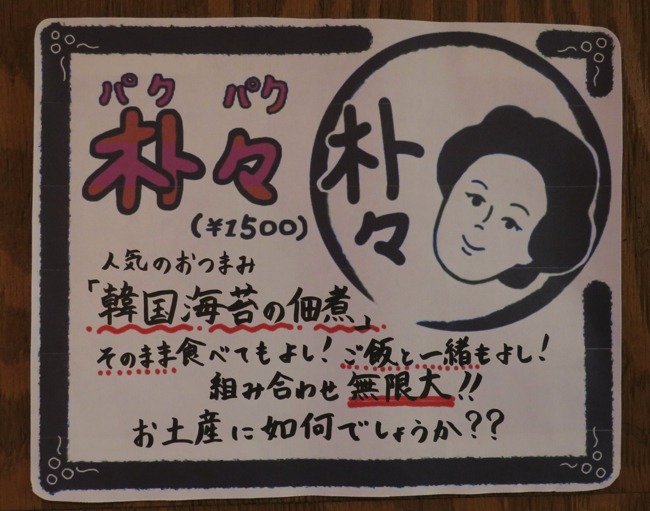 パク パク
朴々
(¥1500)
朴々
人気のおつまみ
「韓国海苔の佃煮」
そのまま食べてもよし!ご飯と一緒もよし!
組み合わせ無限大!!
お土産に如何でしょうか??